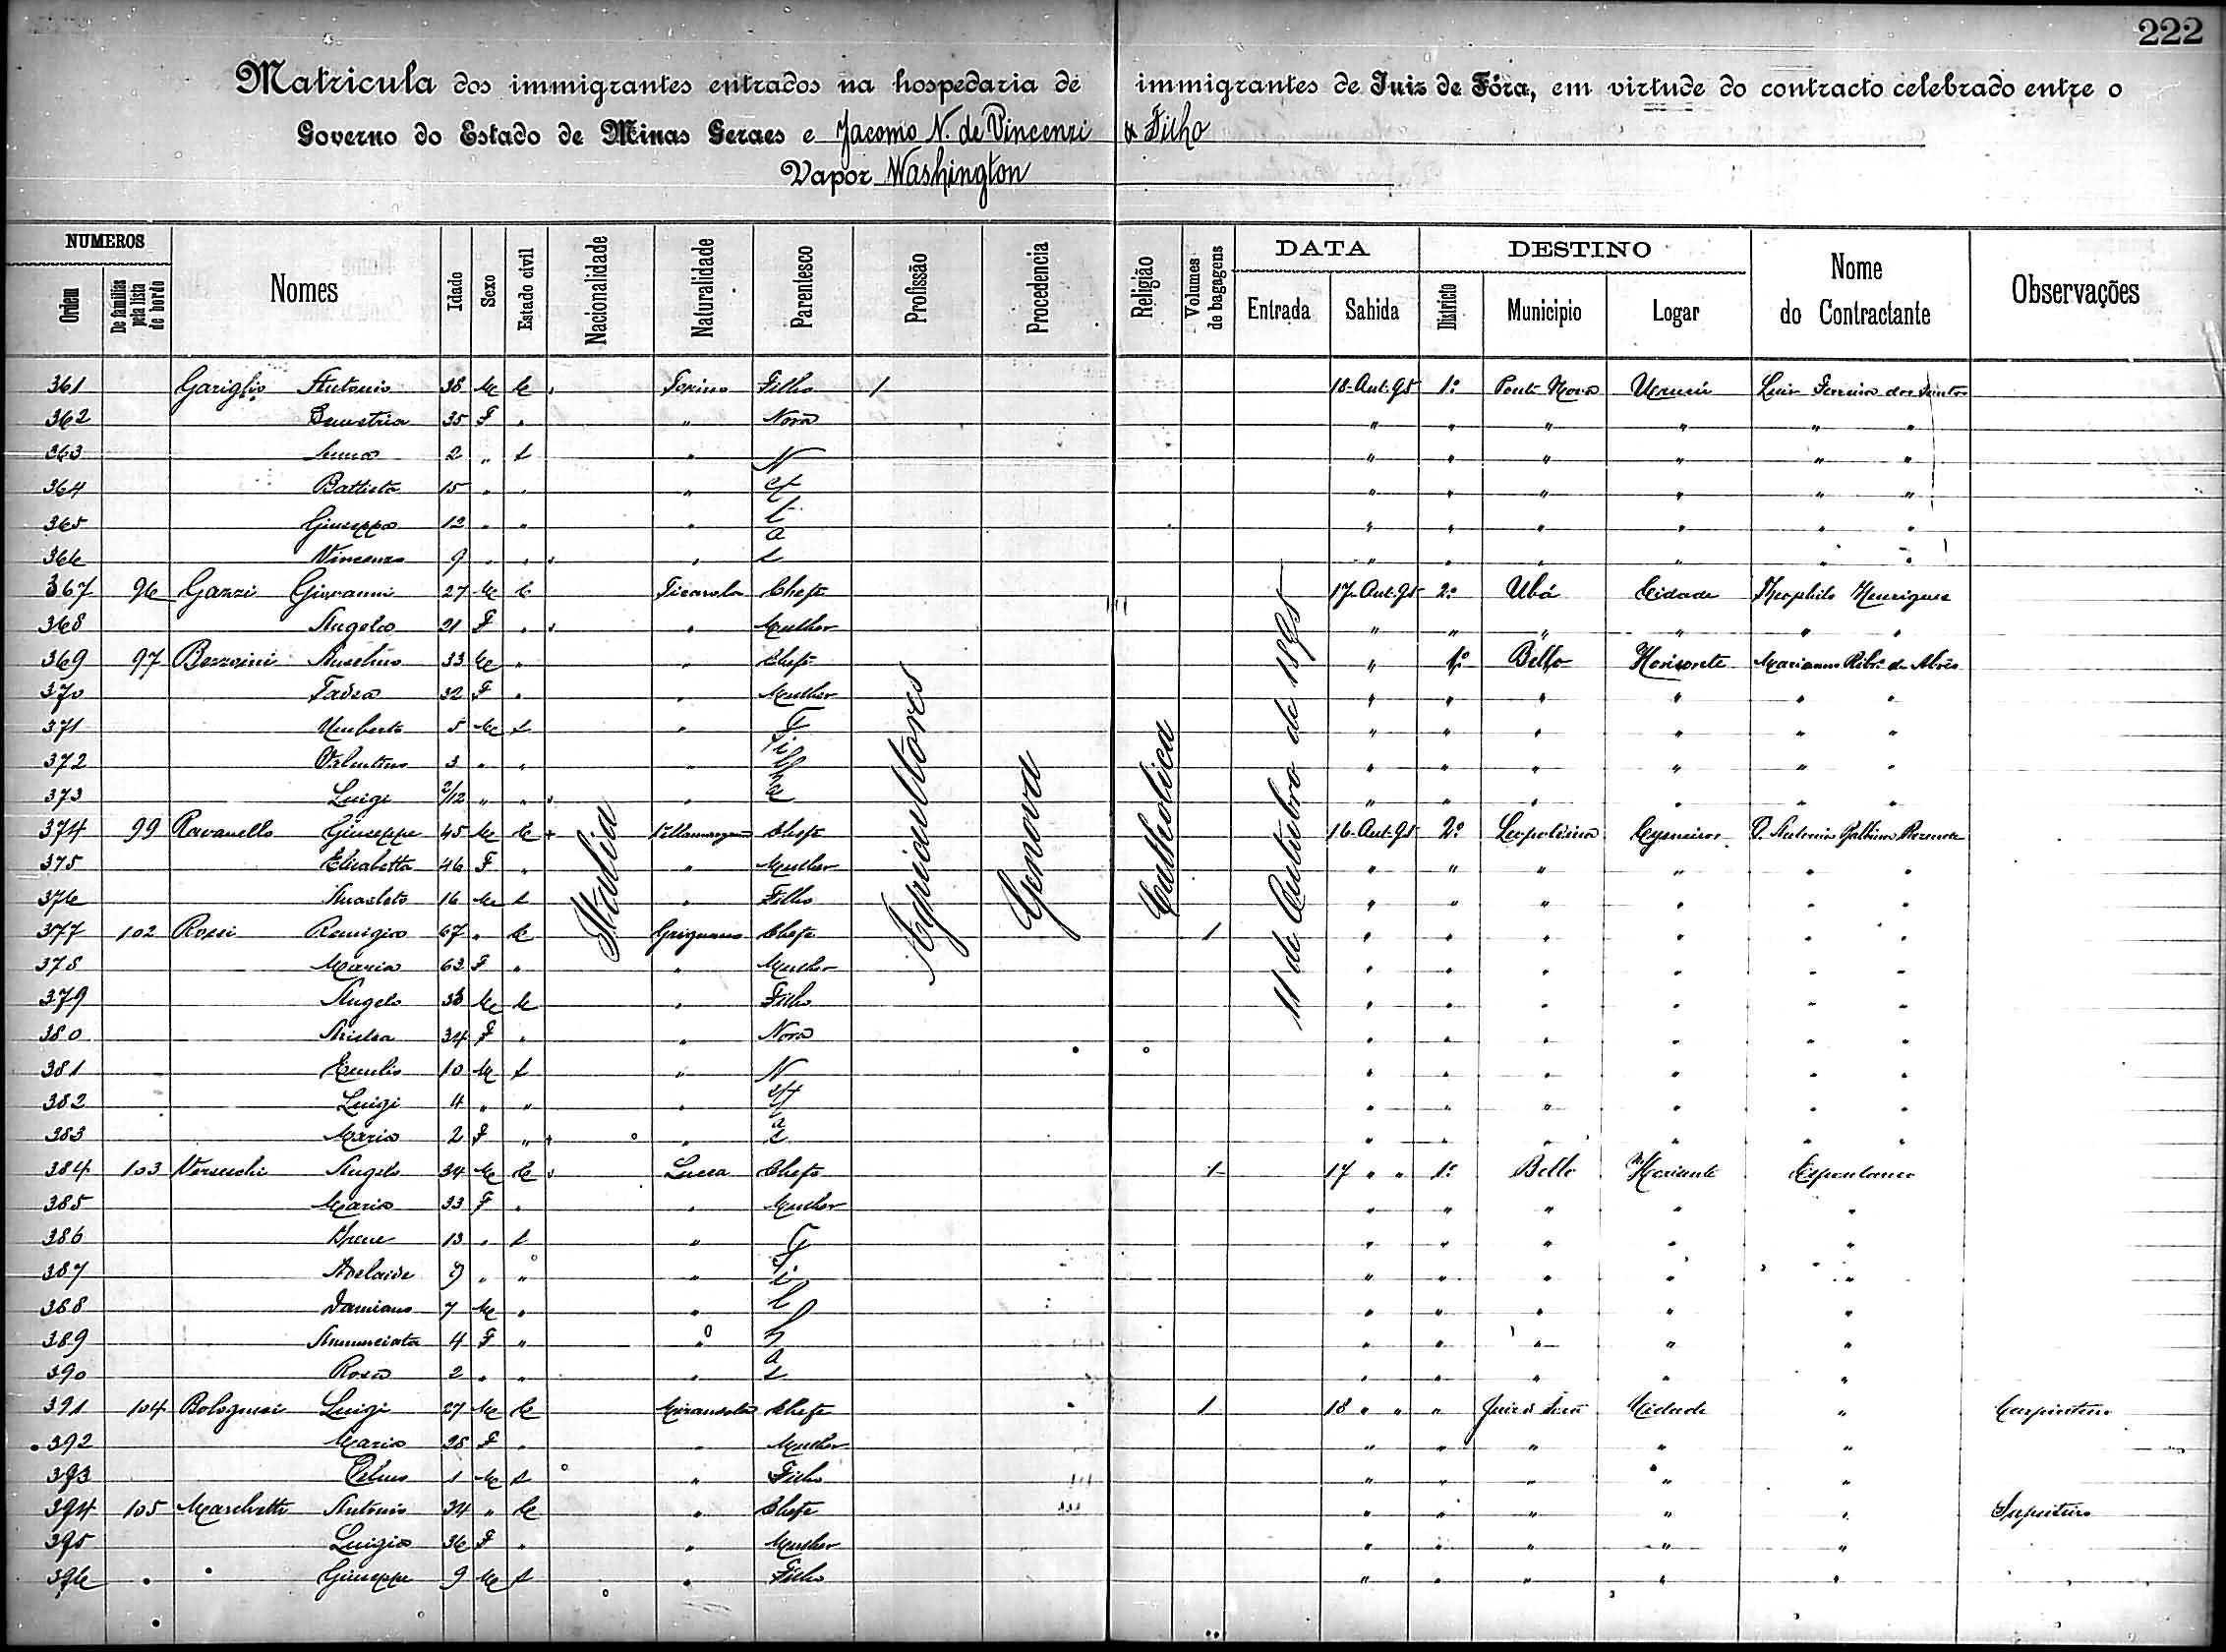 222
Matricula dos immigrantes entrados na hospedaria de immigrantes de Juiz de Fóra, em virtude do contracto celebrado entre o
Governo do Estado de Minas Geraes e Jacomo N. de Vincenzi & Filho
Vapor Washington
NUMEROS
Ordem
De familias pela lista de bordo
Nomes
Idade
Sexo
Estado civil
Nacionalidade
Naturalidade
Parentesco
Profissão
Procedencia
Religião
Volumes de bagagens
DATA
Entrada
Sahida
DESTINO
Districto
Municipio
Logar
Nome do Contractante
Observações
Italia
Agricultores
Genova
Catholica
11 de Outubro de 1895
361 Gariglio Antonio 38 M C Torino Filho 1 18-Out-95 1º Ponte Nova Luiz Ferreira dos Santos
362 35 F " " Nora " " " " " "
363 2 " S " N " " " " " "
364 Battista 15 " " " et " " " " " "
365 Giuseppa 12 " " " t a " " " " " "
366 Vincenza 9 " " " s " " " " " "
367 96 Gazzi Giovanni 27 M C Ficarolo Chefe 17-Out-95 2º Ubá Cidade Theophilo Henriques
368 Angela 21 F " " Mulher " " " " " "
369 97 Anselmo 33 M " " Chefe " 1º Bello Horisonte Marianno Ribº de Abreu
370 Tadea 32 F " " Mulher " " " " " "
371 Umberto 5 M S " F i " " " " " "
372 Valentino 3 " " " l h " " " " " "
373 Luigi 2/12 " " " a " " " " " "
374 99 Ravanello Giuseppe 45 M C Chefe 16-Out-95 2º Leopoldina Cysneiros D. Antonio Balbino Rezende
375 Elisabetta 46 F " " Mulher " " " " " "
376 Anacleto 16 M S " Filho " " " " " "
377 102 Rossi Remigio 67 " C Grignano Chefe 1 " " " " " "
378 Maria 63 F " " Mulher " " " " " "
379 Angelo 33 M C " Filho " " " " " "
380 34 F " " Nora " " " " " "
381 Emilio 10 M S " N " " " " " "
382 Luigi 4 " " " et t " " " " " "
383 Maria 2 F " " a s " " " " " "
384 103 Angelo 34 M C Lucca Chefe 1 17 " " 1º Bello Horisonte Espontaneo
385 Maria 33 F " " Mulher " " " " "
386 Irene 13 " S " F " " " " "
387 Adelaide 9 " " " i " " " " "
388 Damiano 7 M " " l " " " " "
389 Annunciata 4 F " " h " " " " "
390 Rosa 2 " " " a s " " " " "
391 104 Luigi 27 M C Chefe 1 18 " " " Juiz de Fóra Cidade " Carpinteiro
392 Maria 28 F " " Mulher " " " " "
393 1 M S " Filho " " " " "
394 105 Marchetti Antonio 34 " C " Chefe " " " " "
395 Luigia 36 F " " Mulher " " " " "
396 Giuseppe 9 M S " Filho " " " " "